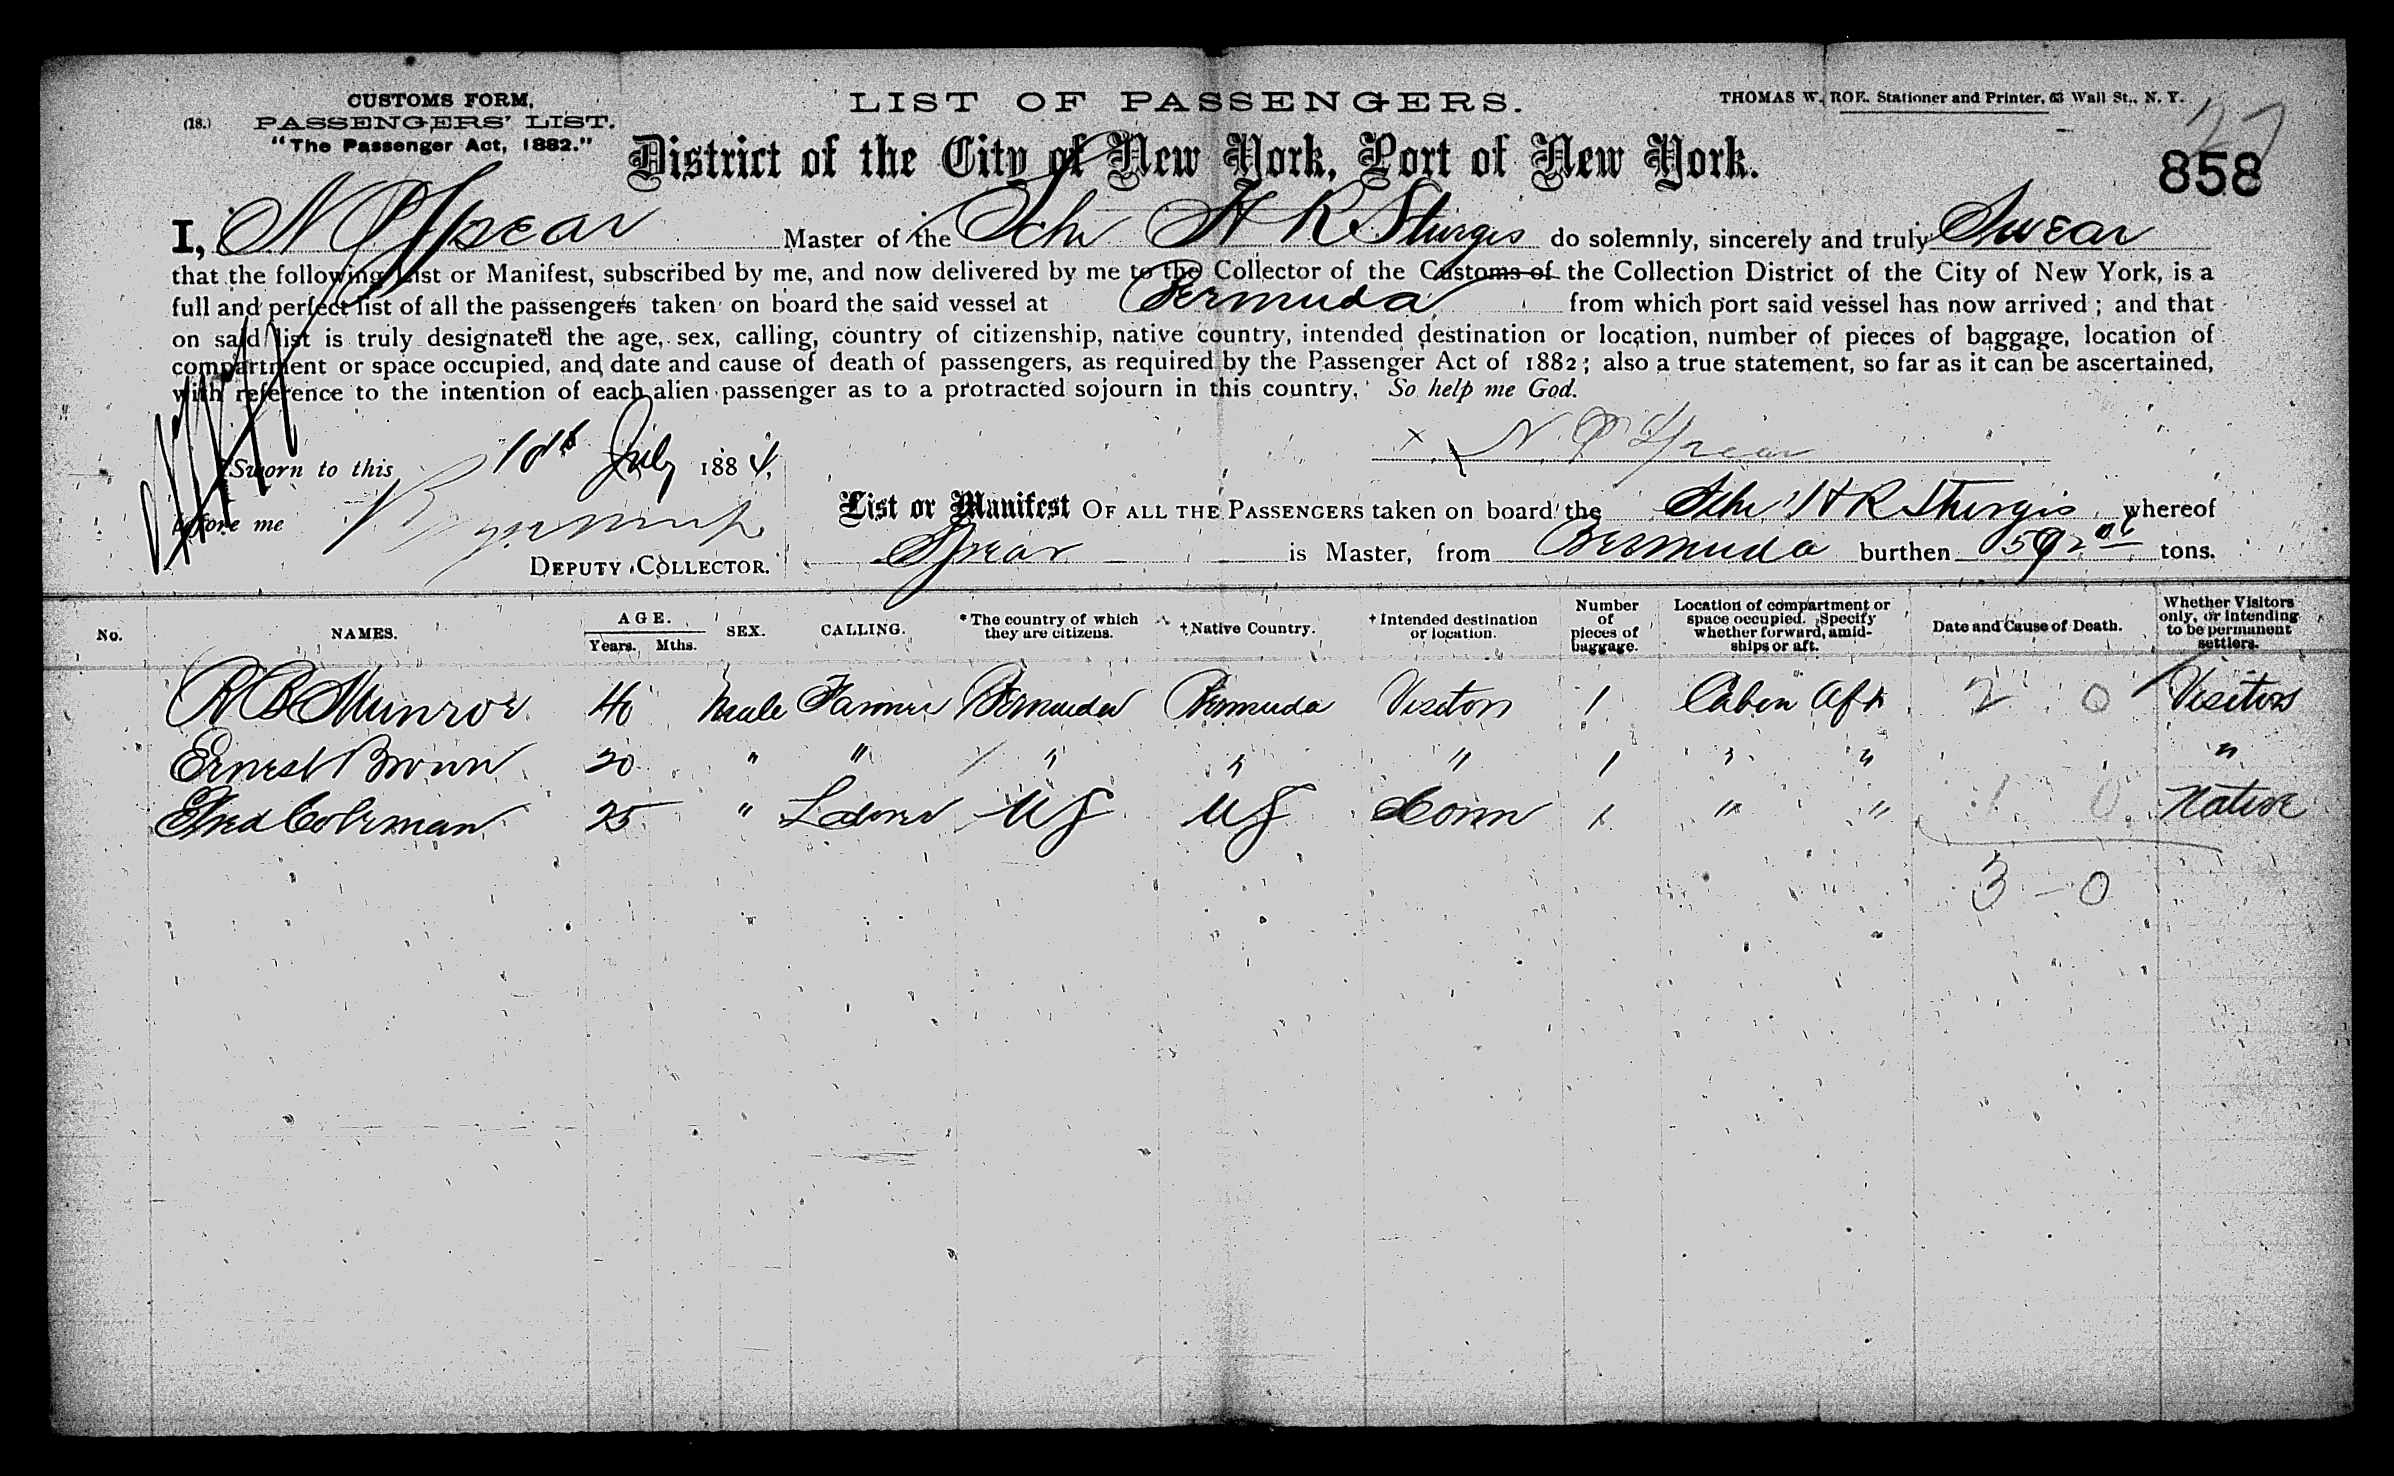 CUSTOMS FORM,
(18.) PASSENGERS' LIST.
"The Passenger Act, 1882."
LIST OF PASSENGERS.
THOMAS W. ROE. Stationer and Printer, 63 Wall St., N. Y.
27
858
District of the City of New York, Port of New York.
I, N P Spear Master of the Schr H R Sturgis do solemnly, sincerely and truly Swear
that the following List or Manifest, subscribed by me, and now delivered by me to the Collector of the Customs of the Collection District of the City of New York, is a
full and perfect list of all the passengers taken on board the said vessel at Bermuda from which port said vessel has now arrived; and that
on said list is truly designated the age, sex, calling, country of citizenship, native country, intended destination or location, number of pieces of baggage, location of
compartment or space occupied, and date and cause of death of passengers, as required by the Passenger Act of 1882; also a true statement, so far as it can be ascertained,
with reference to the intention of each alien passenger as to a protracted sojourn in this country. So help me God.
Sworn to this July 1884.
x N. P Spear
before me
DEPUTY COLLECTOR.
List or Manifest OF ALL THE PASSENGERS taken on board the Schr H R Sturgis whereof
Spear is Master, from Bermuda burthen 592 tons.
No. NAMES. AGE. Years. Mths. SEX. CALLING. *The country of which they are citizens. †Native Country. †Intended destination or location. Number of pieces of baggage. Location of compartment or space occupied. Specify whether forward, amidships or aft. Date and Cause of Death. Whether Visitors only, or intending to be permanent settlers.
R B Munroe 40 Male Farmer Bermuda Bermuda Visitors 1 Cabin Aft 2 0 Visitors
Ernest Brown 20 " " " " " 1 " " "
Fred Coleman 25 " US US Conn 1 " " 1 0 Native
3 - 0